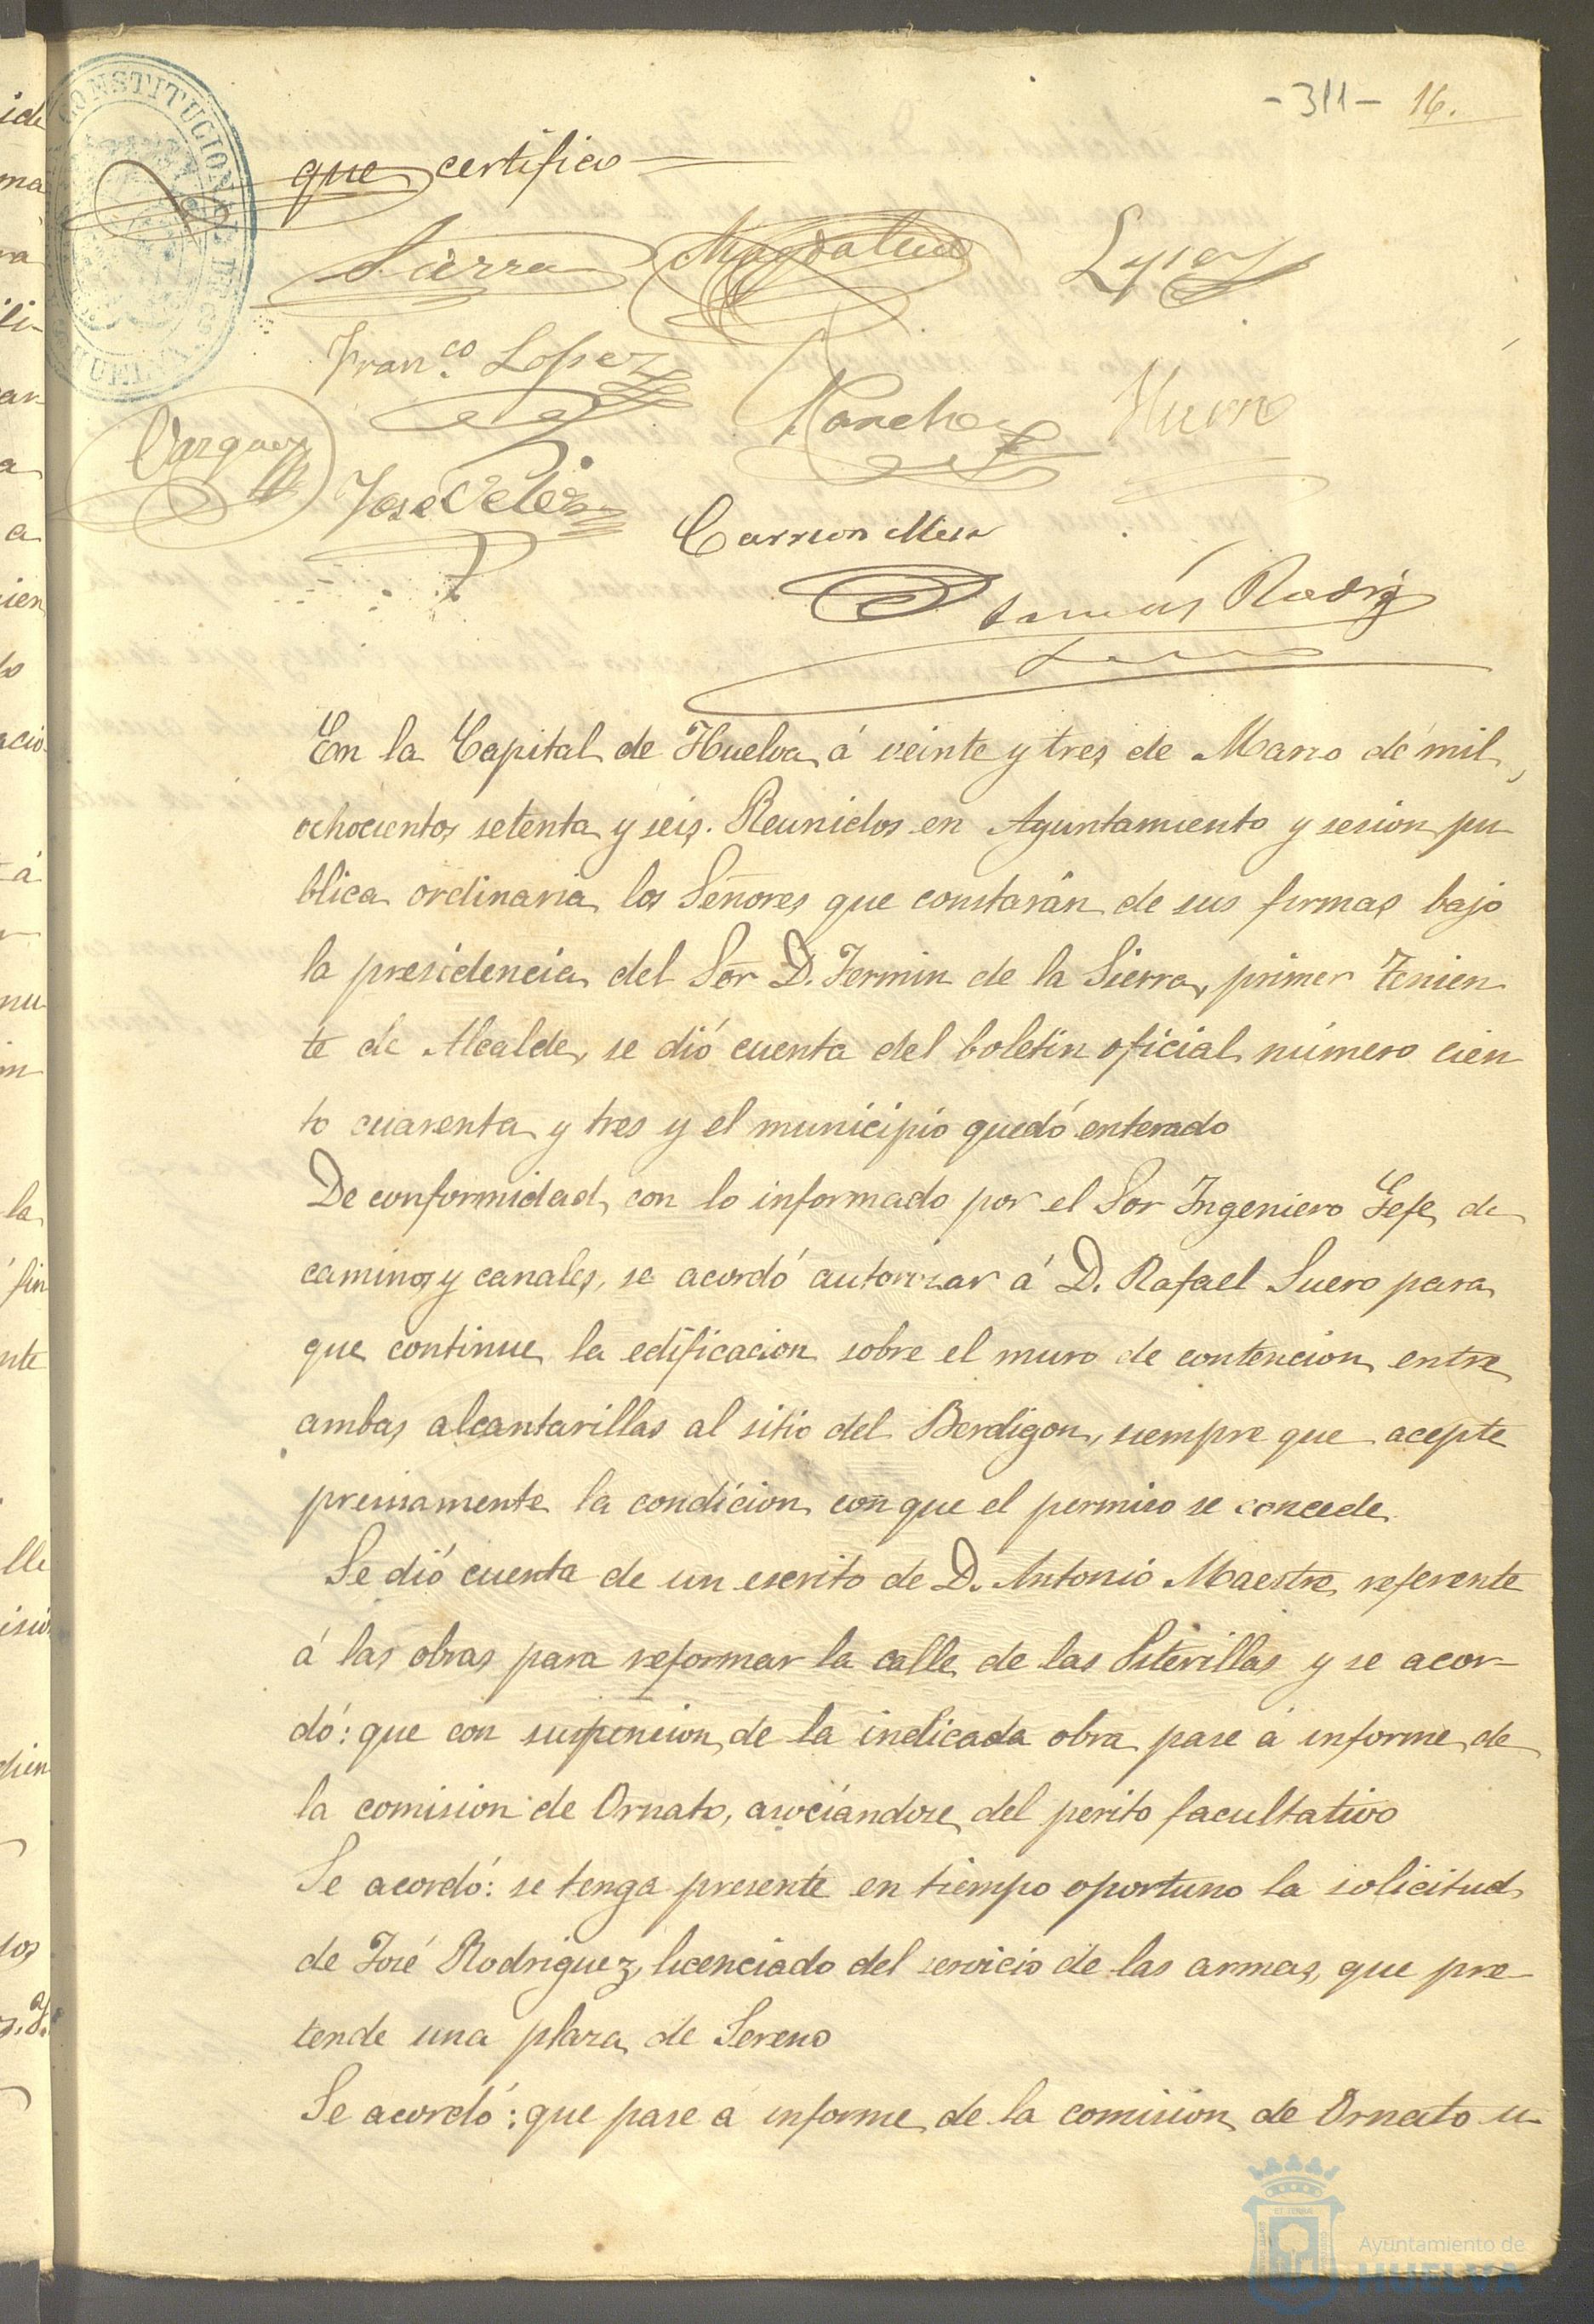 -311- 16.
CONSTITUCIONAL DE
que certifico
Sierra Magdalena
Franco. Lopez Sanchez
Vazquez
José Velez
Carrion Mesa
Tomás Rodrig
En la Capital de Huelva á veinte y tres de Marzo de mil
ochocientos setenta y seis. Reunidos en Ayuntamiento y sesion pu
blica ordinaria los Señores que constarán de sus firmas bajo
la presidencia del Sor D. Fermin de la Sierra, primer Tenien
te de Alcalde, se dió cuenta del boletin oficial número cien
to cuarenta y tres y el municipio quedó enterado
De conformidad con lo informado por el Sor Ingeniero Gefe de
caminos y canales, se acordó autorizar á D. Rafael Suero para
que continue la edificacion sobre el muro de contencion entre
ambas alcantarillas al sitio del Berdigon, siempre que acepte
previamente la condicion con que el permiso se concede
Se dió cuenta de un escrito de D. Antonio Maestre referente
á las obras para reformar la calle de las Siterillas y se acor-
dó: que con suspencion de la indicada obra pase á informe de
la comision de Ornato, asociándose del perito facultativo
Se acordó: se tenga presente en tiempo oportuno la solicitud
de José Rodriguez, licenciado del servicio de las armas, que pre-
tende una plaza de Sereno
Se acordó: que pase á informe de la comision de Ornato u
Ayuntamiento de
HUELVA